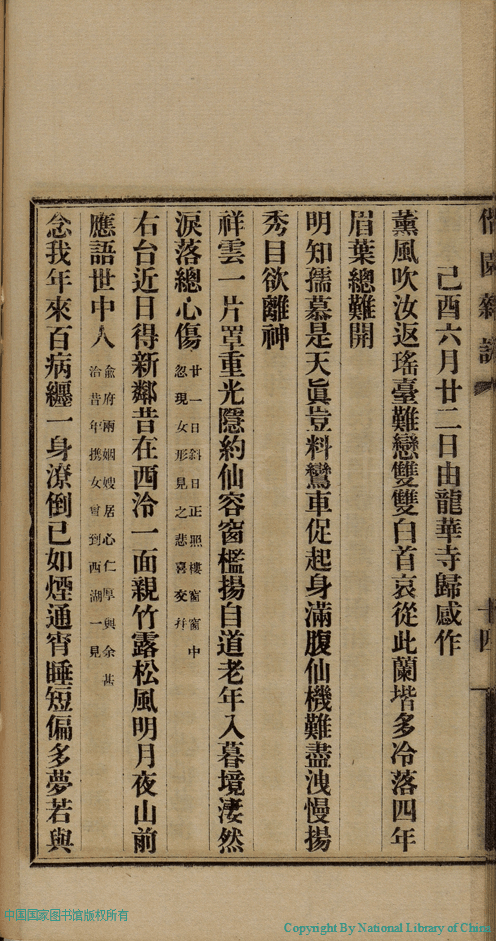 僧園雜詩
十四
己酉六月廿二日由龍華寺歸感作
薰風吹汝返瑤臺難戀雙雙白首哀從此蘭堦多冷落四年
眉葉總難開
明知孺慕是天眞豈料鸞車促起身滿腹仙機難盡洩慢揚
秀目欲離神
祥雲一片罩重光隱約仙容窗檻揚自道老年入暮境淒然
淚落總心傷廿一日斜日正照樓窗窗中
忽現女形見之悲喜交并
右台近日得新鄰昔在西泠一面親竹露松風明月夜山前
應語世中人俞府兩姻嫂居心仁厚與余甚
洽昔年携女曾到西湖一見
念我年來百病纏一身潦倒已如煙通宵睡短偏多夢若與
中国国家图书馆版权所有
Copyright By National Library of China